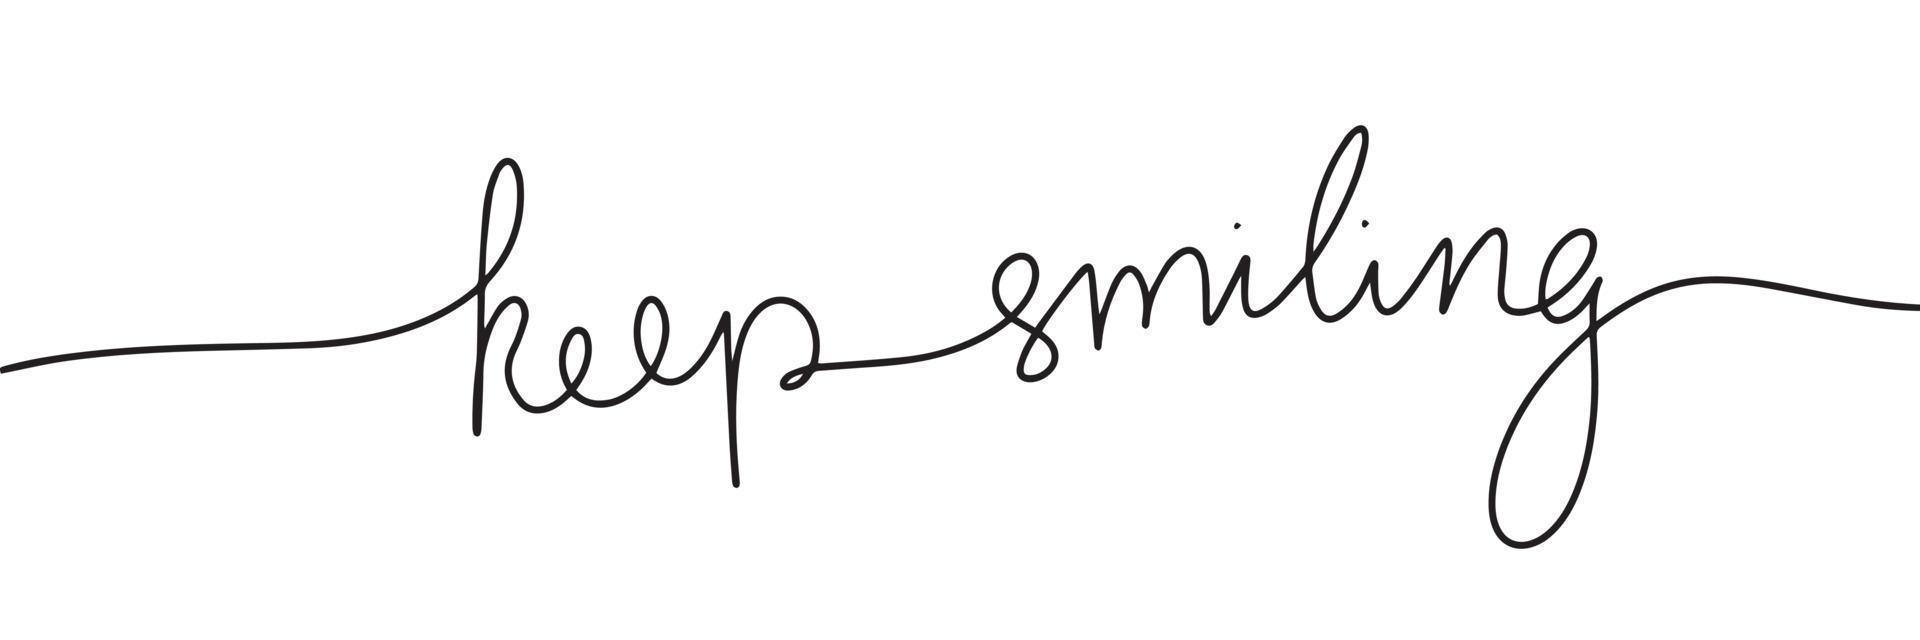 keep smiling